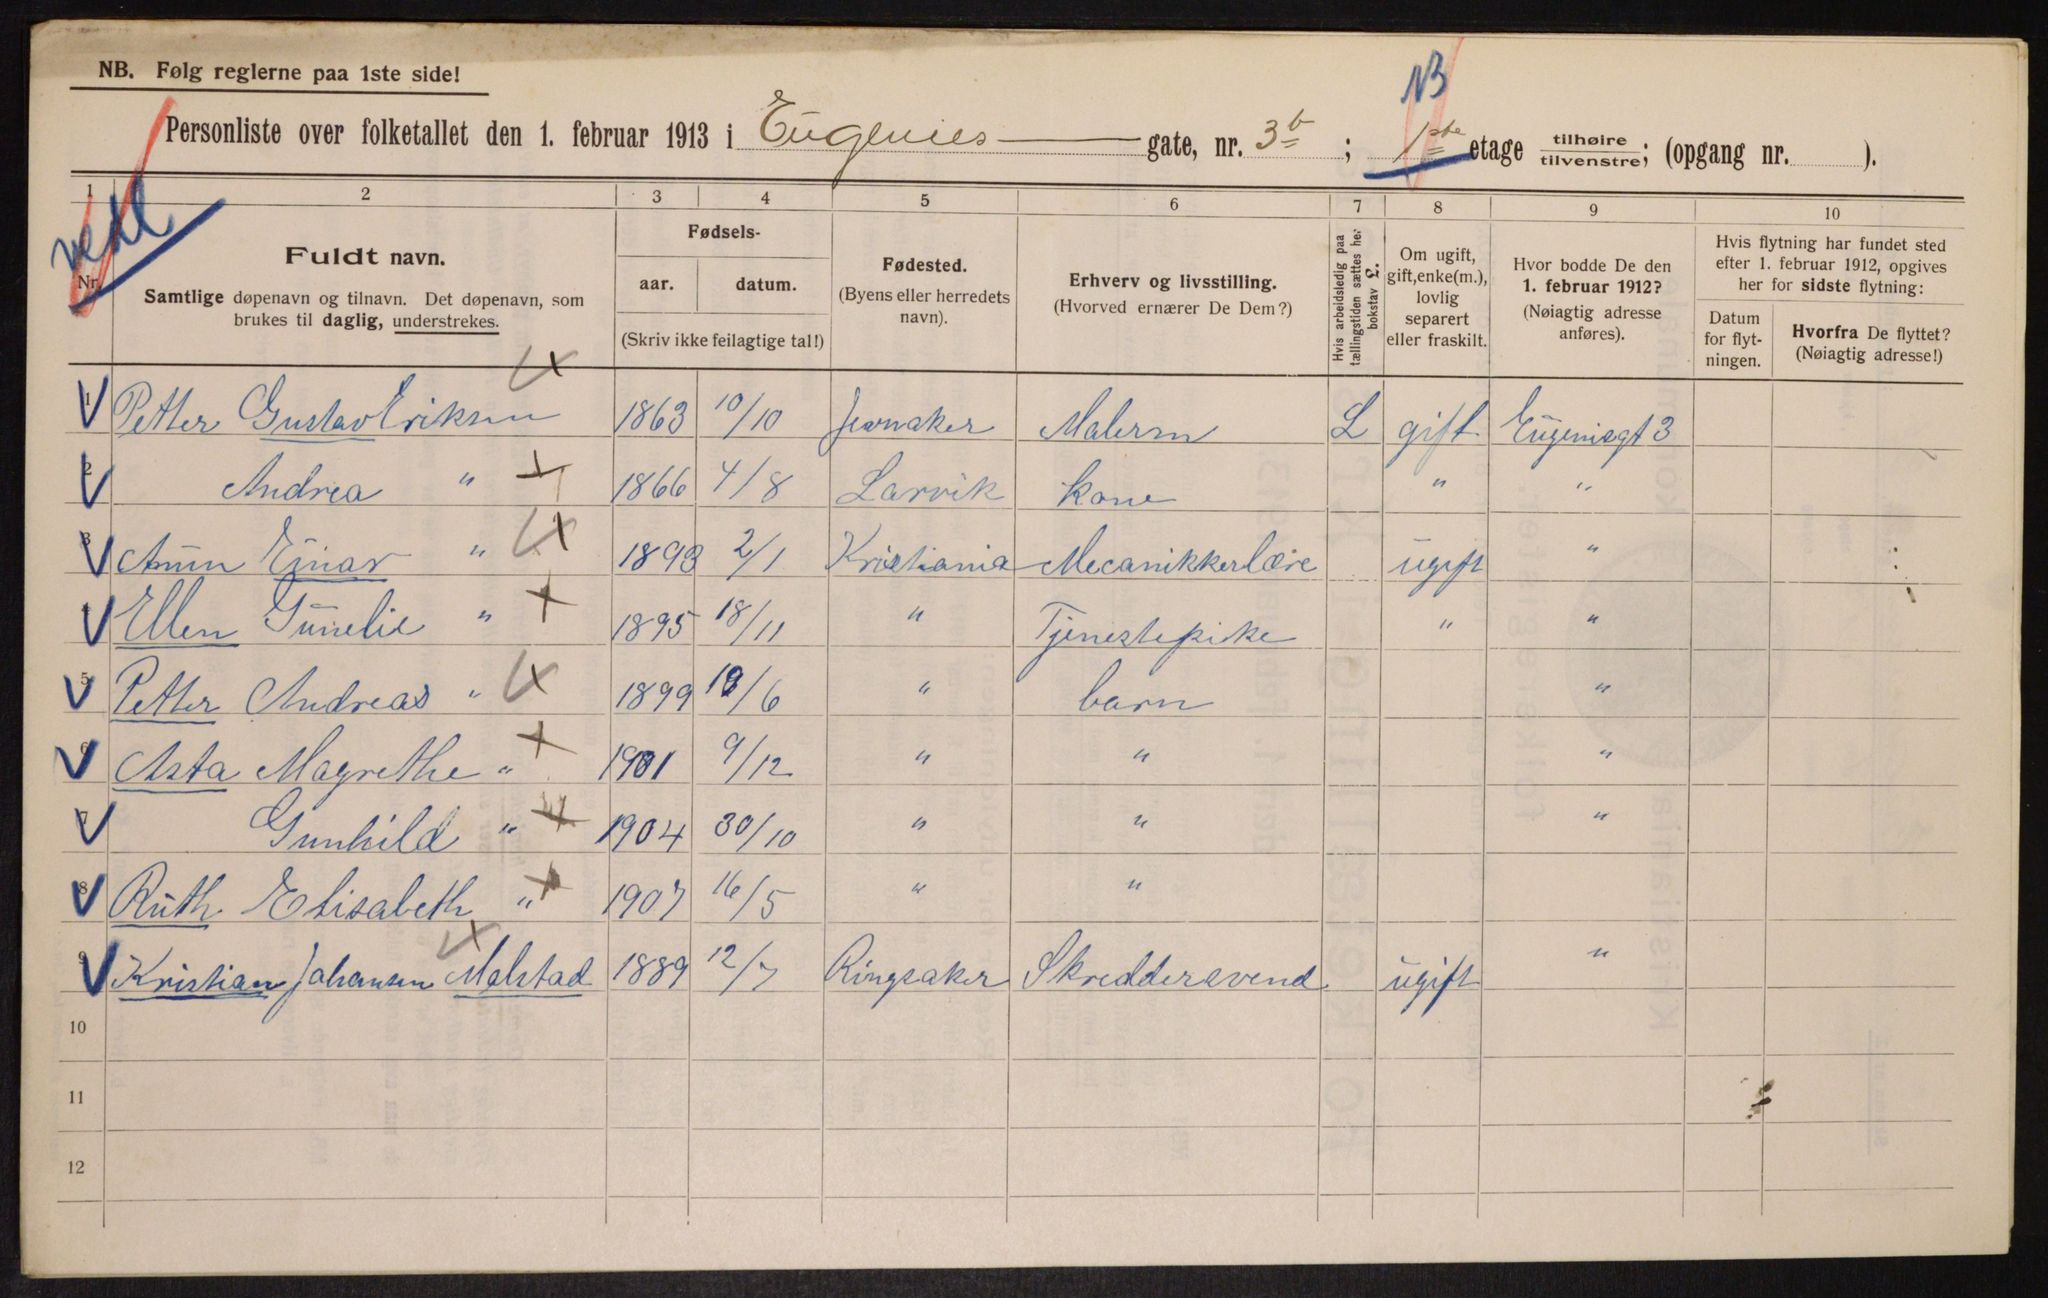 NB. Følg reglerne paa 1ste side!
NB
Personliste over folketallet den 1. februar 1913 i Eugenies gate, nr. 3b ; 1ste etage tilhøire tilvenstre; (opgang nr. ).
1 2 3 4 5 6 7 8 9 10
vedl
Nr.
Fuldt navn.
Samtlige døpenavn og tilnavn. Det døpenavn, som
brukes til daglig, understrekes.
Fødsels-
aar. datum.
(Skriv ikke feilagtige tal!)
Fødested.
(Byens eller herredets
navn).
Erhverv og livsstilling.
(Hvorved ernærer De Dem?)
Hvis arbeidsledig paa
tællingstiden sættes her
bokstav £.
Om ugift,
gift, enke(m.),
lovlig
separert
eller fraskilt.
Hvor bodde De den
1. februar 1912?
(Nøiagtig adresse
anføres).
Hvis flytning har fundet sted
efter 1. februar 1912, opgives
her for sidste flytning:
Datum
for flyt-
ningen.
Hvorfra De flyttet?
(Nøiagtig adresse!)
1 Petter Gustav Eriksen 1863 10/10 Jevnaker Malersv L gift Eugeniegt 3
2 Andrea " 1866 4/8 Larvik kone " "
3 Einar " 1893 2/1 Kristiania Mecanikkerlære ugift "
4 Ellen " 1895 18/11 " Tjenestepike " "
5 Petter Andreas " 1899 19/6 " barn "
6 Asta Magrethe " 1901 9/12 " " "
7 Gunhild " 1904 30/10 " " "
8 Ruth Elisabeth " 1907 16/5 " "
9 Kristian Johansen Melstad 1889 12/7 Ringsaker Skreddersvend ugift "
10
11
12